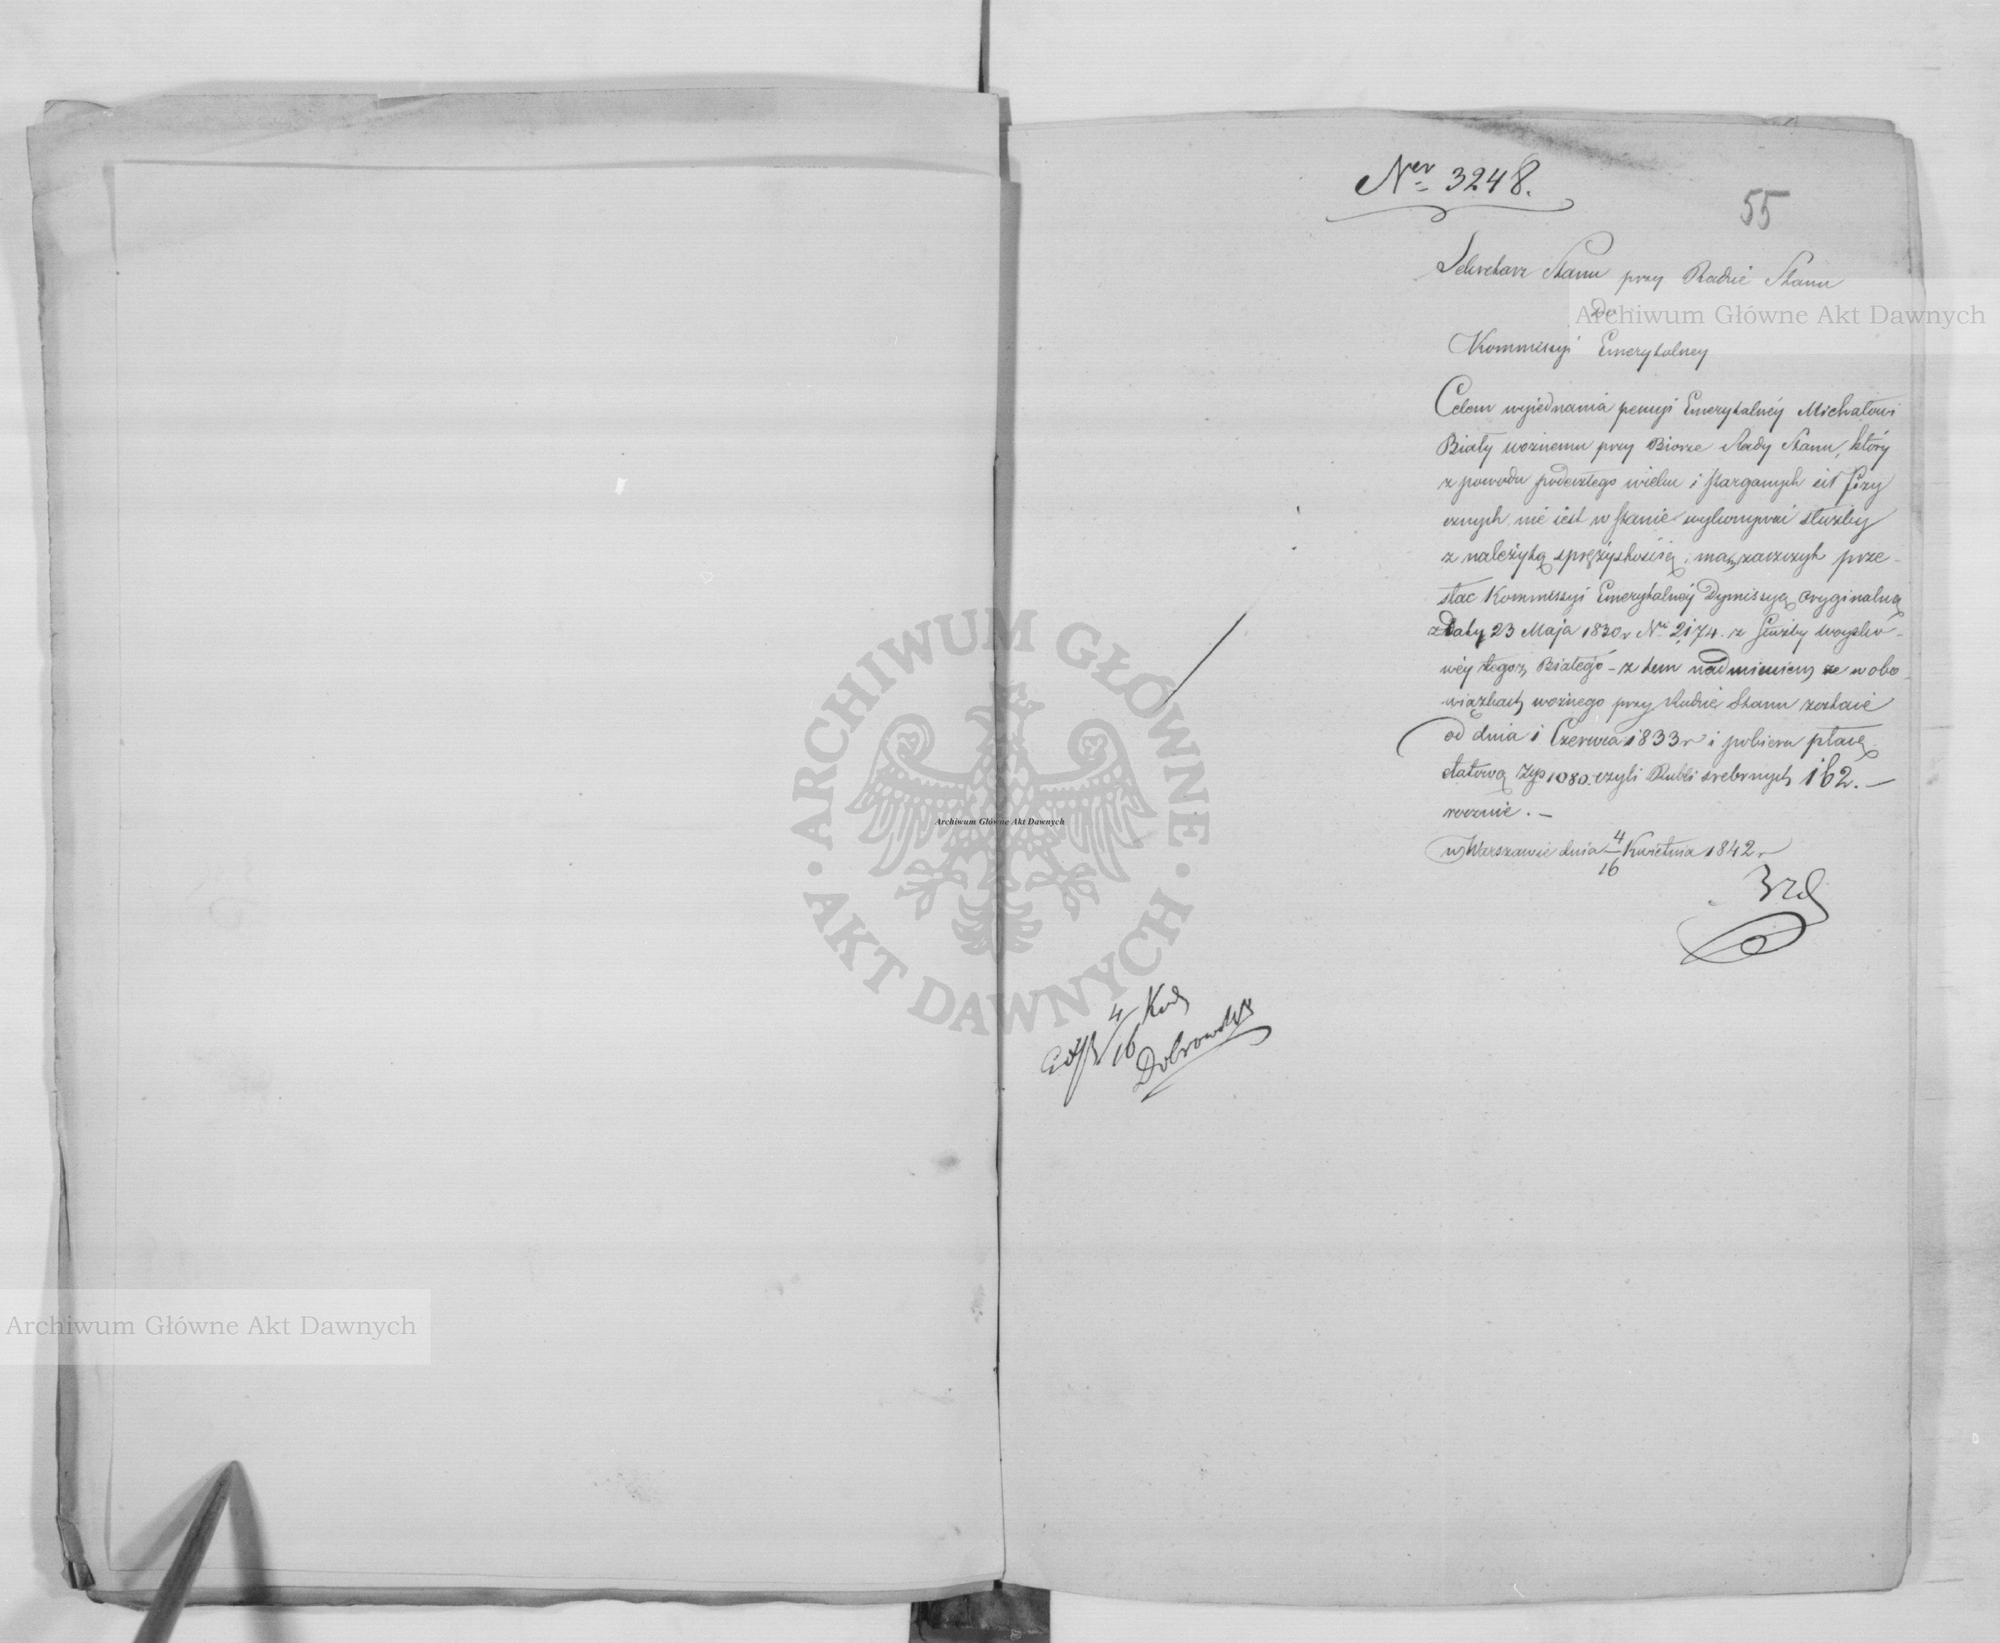 Ner 3248.
55
Sekretarz Stanu przy Radzie Stanu
Do
Kommissyi Emerytalney
Celem wyiednania pensyi Emerytalnéy Michałowi
Biały woźnemu przy Biorze Rady Stanu, który
z powodu podeszłego wieku i starganych sił fizy
cznych nie iest w stanie wykonywać służby
z należytą sprężystością, mam zaszczyt prze-
słać Kommissyi Emerytalnéy Dymissyą oryginalną
z Daty 23 Maja 1830 r Nr 2174. z Służby woysko-
wéy tegoż Białego - z tem nadmieniem że w obo-
wiązkach woźnego przy Radzie Stanu zostaie
od dnia 1 Czerwca 1833 r i pobiera płacę
etatową Złp 1080. czyli Rubli srebrnych 162. -
rocznie. -
w Warszawie dnia 4/16 Kwietnia 1842 r
4/16 Kw
Dobrowolski
Archiwum Główne Akt Dawnych
Archiwum Główne Akt Dawnych
Archiwum Główne Akt Dawnych
ARCHIWUM GŁÓWNE AKT DAWNYCH